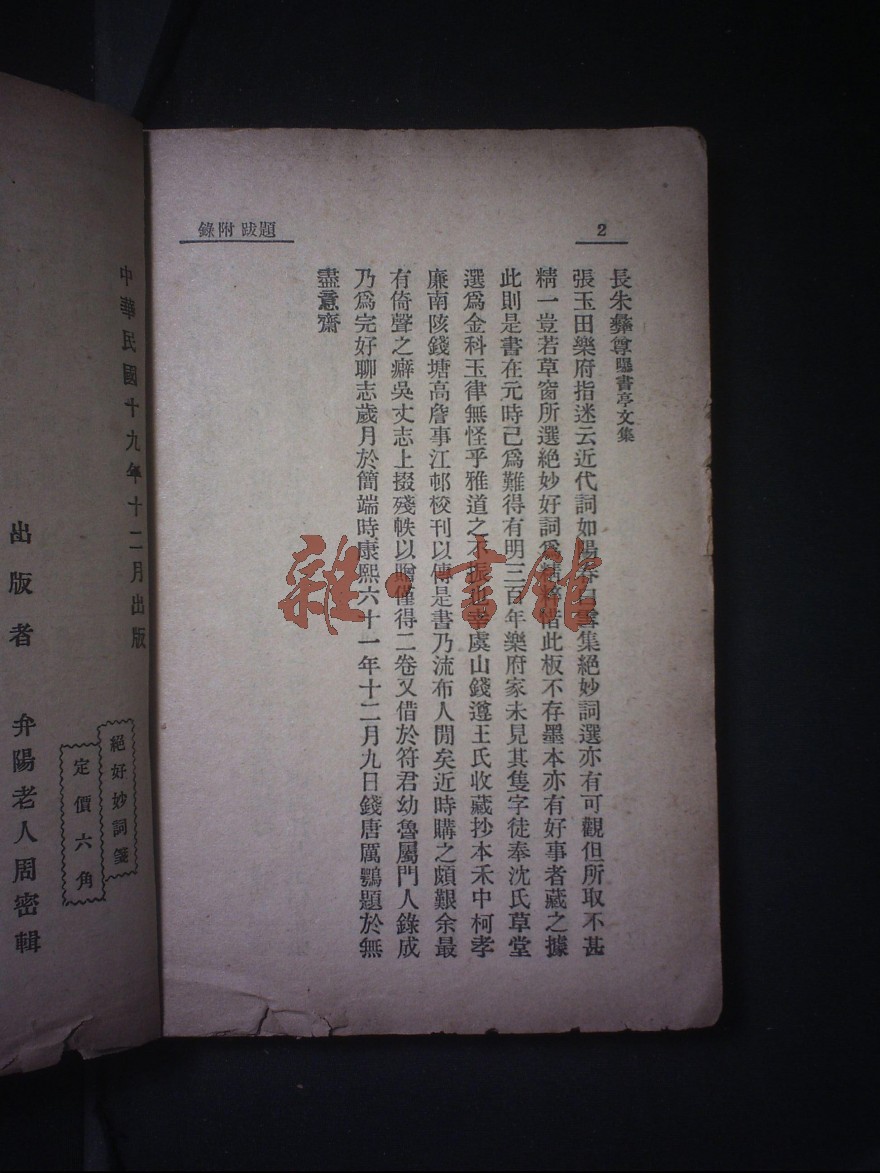 2
題跋附錄
長朱彝尊曝書亭文集
張玉田樂府指迷云近代詞如陽春白雪集絕妙詞選亦有可觀但所取不甚
精一豈若草窗所選絕妙好詞為精粹惜此板不存墨本亦有好事者藏之據
此則是書在元時已為難得有明三百年樂府家未見其隻字徒奉沈氏草堂
選為金科玉律無怪乎雅道之不振也幸虞山錢遵王氏收藏抄本禾中柯孝
廉南陔錢塘高詹事江邨校刊以傳是書乃流布人間矣近時購之頗艱余最
有倚聲之癖吳丈志上掇殘帙以贈僅得二卷又借於符君幼魯屬門人錄成
乃為完好聊志歲月於簡端時康熙六十一年十二月九日錢唐厲鶚題於無
盡意齋
中華民國十九年十二月出版
絕好妙詞箋
定價六角
出版者 弁陽老人周密輯
雜·書館